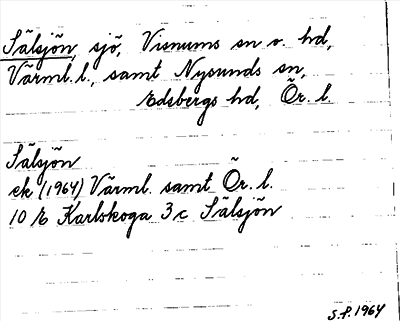 Sälsjön, sjö, Visnums sn o. hd,
Värml. l., samt Nysunds sn,
Edsbergs hd, Ör. l.
Sälsjön
ek (1964) Värml. samt Ör. l.
10 E Karlskoga 3c Sälsjön
S.F. 1964